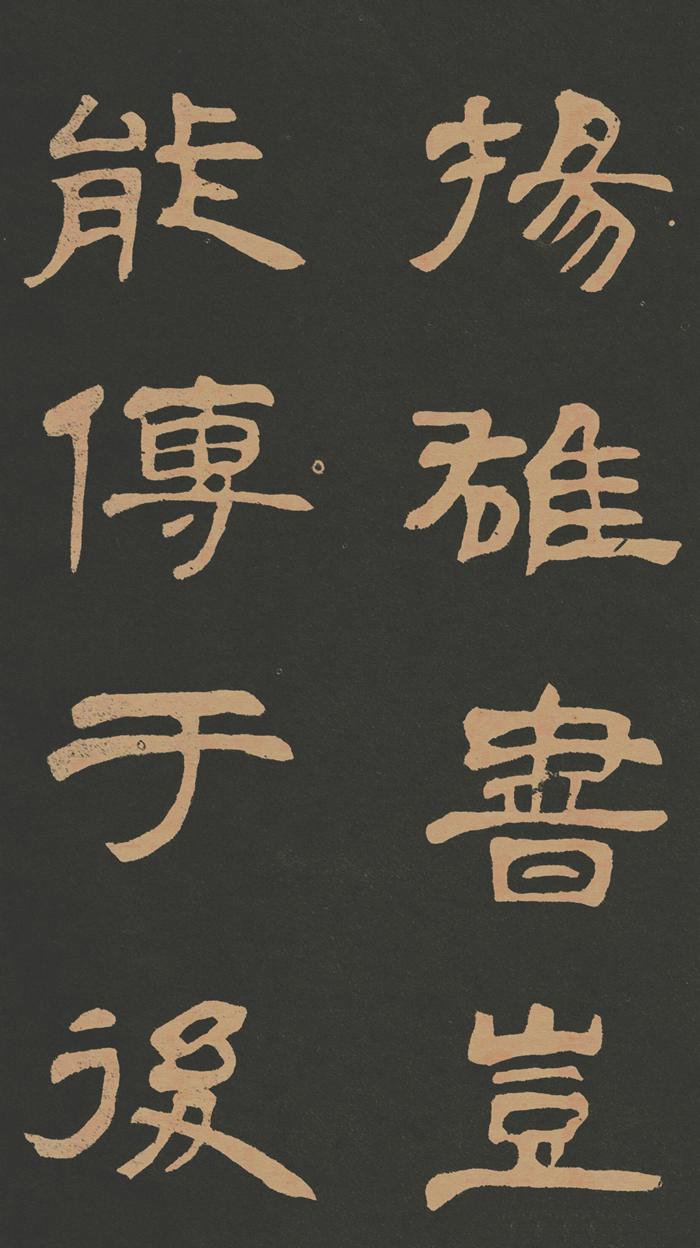 揚雄書豈
能傳于後